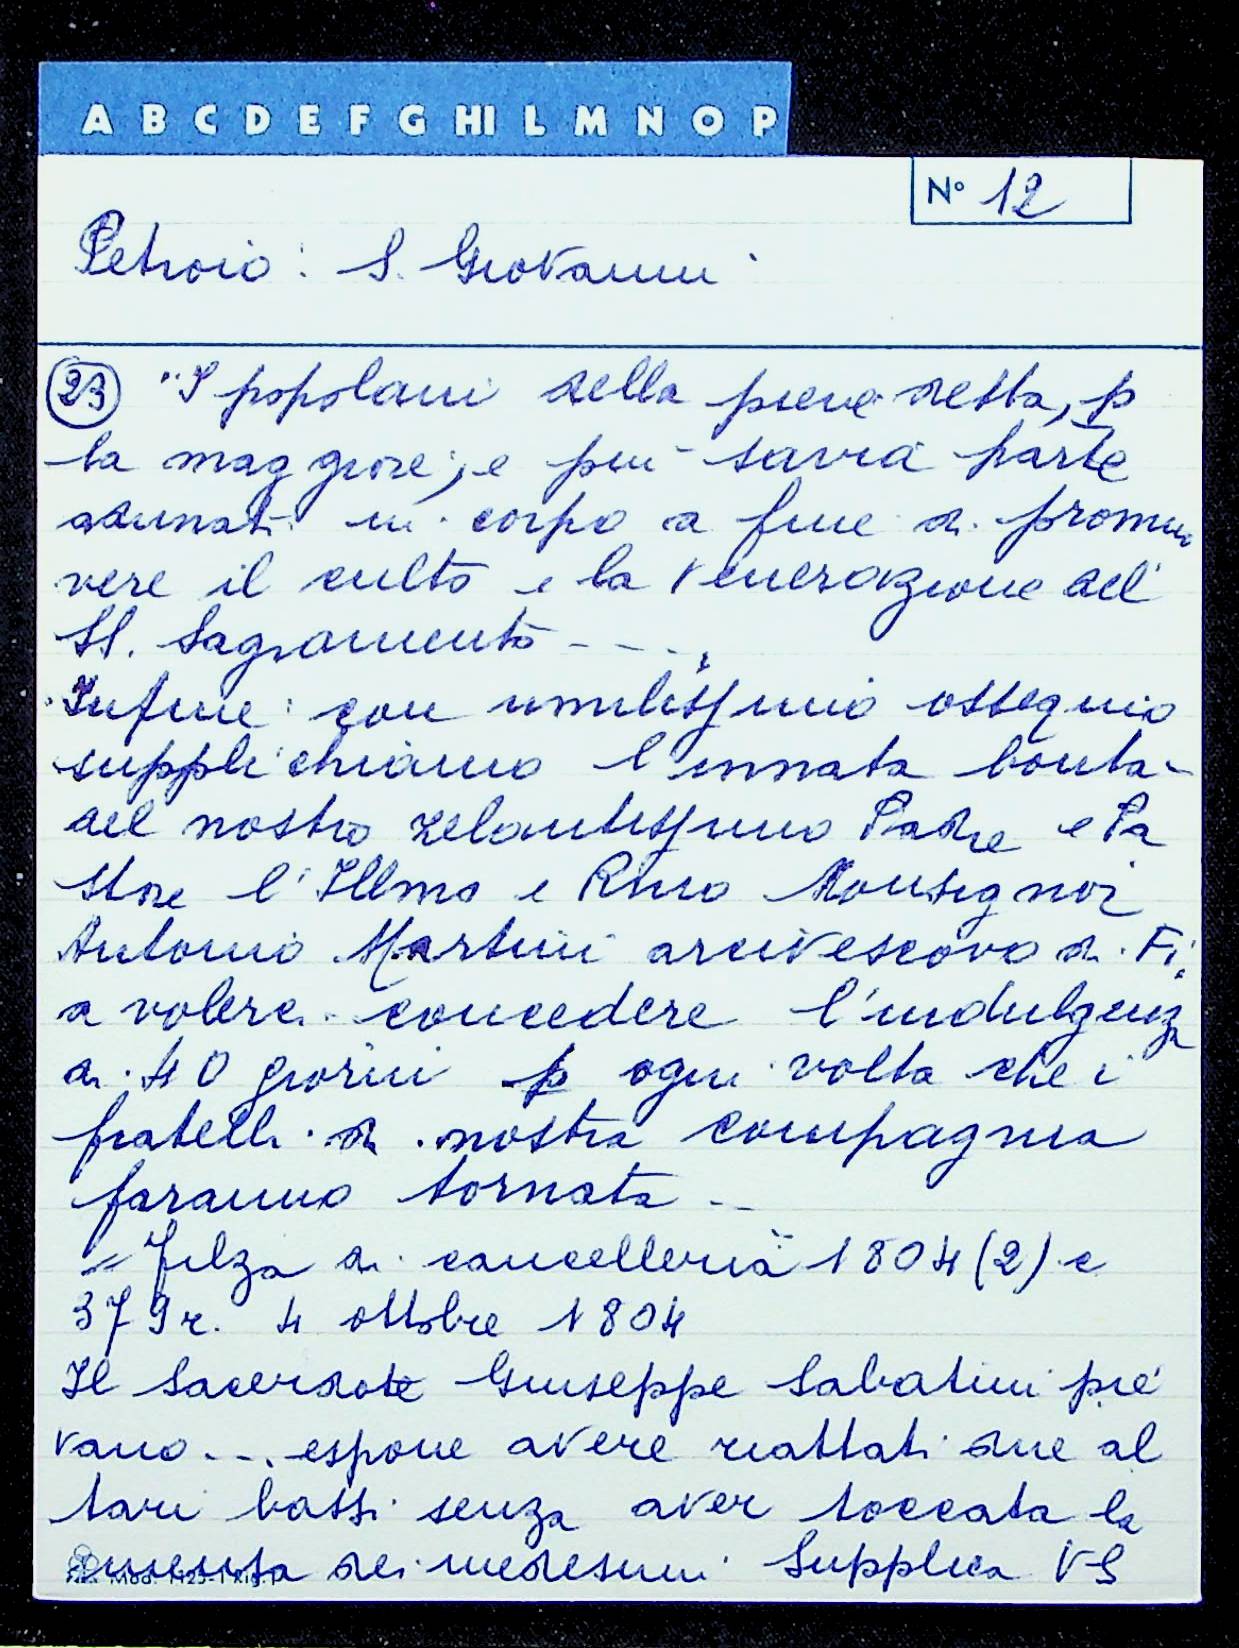 A B C D E F G HI L M N O P
N° 12
Petroio: S. Giovanni
23 "I popolani della pieve detta, p
la maggiore, e piu savia parte
adunati in corpo a fine di promuo
vere il culto e la venerazione del
SS. Sagramento - - - .
Infine: con umilissimo ossequio
supplichiamo l'innata bonta
del nostro zelantissimo Padre e Pa
store l'Illmo e Rmo Monsignor
Antonio Martini arcivescovo di Fi.
a volere concedere l'indulgenza
di 40 giorni p ogni volta che i
fratelli di nostra compagnia
faranno tornata --
= Filza di cancelleria 1804 (2) c
379r. 4 ottobre 1804
Il Sacerdote Giuseppe Sabatini pie
vano ... espone avere riattati due al
tari bassi senza aver toccata la
mensa dei medesimi Supplica VS